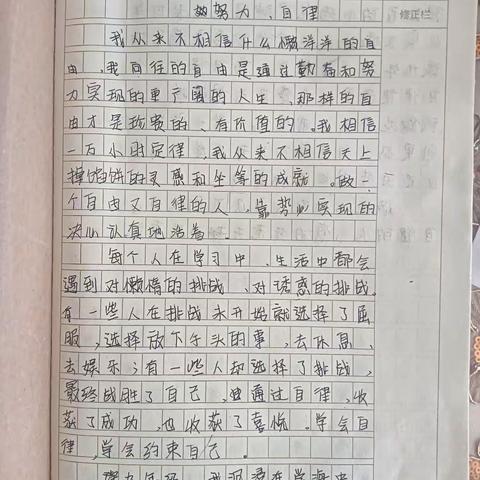 努力、自律
修正栏
我从来不相信什么懒洋洋的自
由，我向往的自由是通过勤奋和努
力实现的更广阔的人生，那样的自
由才是珍贵的、有价值的。我相信
一万小时定律，我从来不相信天上
掉馅饼的灵感和坐等的成就。做一
个自由又自律的人，靠势必实现的
决心认真地活着。
每个人在学习中、生活中都会
遇到对懒惰的挑战、对诱惑的挑战。
有一些人在挑战未开始就选择了屈
服，选择放下手头的事，去休息，
去娱乐；有一些人却选择了挑战，
最终战胜了自己，通过自律，收
获了成功，也收获了喜悦。学会自
律，学会约束自己。
我沉浸在学海中